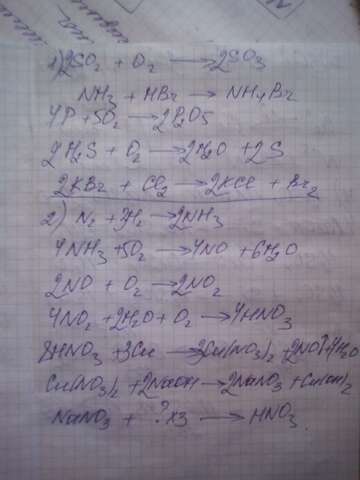 1) 2SO₂ + O₂ ⟶ 2SO₃
NH₃ + HBr → NH₄Br
4P + 5O₂ ⟶ 2P₂O5
2H₂S + O₂ ⟶ 2H₂O + 2S
2KBr + Cl₂ ⟶ 2KCl + Br₂
2) N₂ + 3H₂ ⟶ 2NH₃
4NH₃ + 5O₂ ⟶ 4NO + 6H₂O
2NO + O₂ ⟶ 2NO₂
4NO₂ + 2H₂O + O₂ ⟶ 4HNO₃
8HNO₃ + 3Cu ⟶ 3Cu(NO₃)₂ + 2NO↑ + 4H₂O
Cu(NO₃)₂ + 2NaOH ⟶ 2NaNO₃ + Cu(OH)₂
NaNO₃ + ? хз ⟶ HNO₃